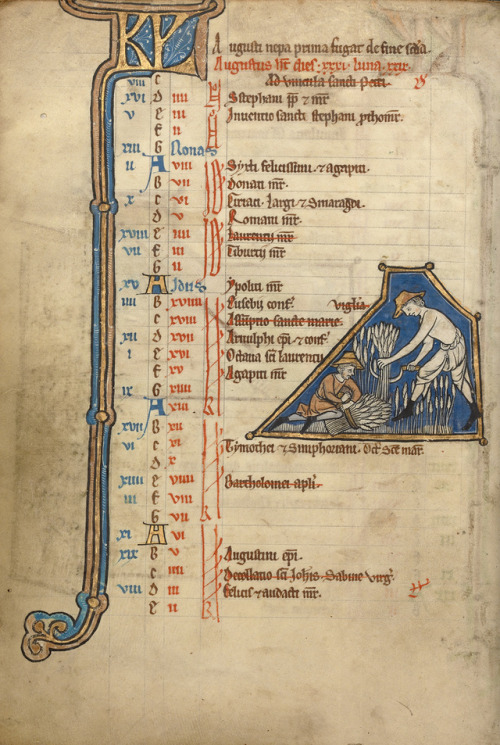 KL Augusti nepa prima fugat de fine scda.
Augustus ht dies .xxxi. luna .xxix.
viii c Ad vincula sancti Petri.
xvi d iiii S stephani pp & mr
v e iii Inventio sancti stephani prthomr.
f ii
xiii G Nonas
ii A viii Syxti felicissimi & agapiti.
B vii Donati mr.
x c vi Ciriaci Largi & Smaragdi
d v Romani mr.
xviii e iiii Laurentii mr
vii f iii Tiburtii mr.
G ii
xv A Idus Ypoliti mr
iiii B xviiii Eusebii conf. vigilia
c xviii sancte marie
xii d xvii Arnulphi epi & conf
i e xvi Octava sci laurentii
f xv Agapiti mr
ix G xiiii
A xiii
xvii B xii
vi c xi Tymothei & Simphoriani. Oct. Sce mar.
d x
xiiii e viiii Bartholomei apli.
iii f viii
G vii
xi A vi
xix B v Augustini epi.
c iiii Decollatio sci Johis. Sabine virg.
viii d iii felicis & audacti mr.
e ii